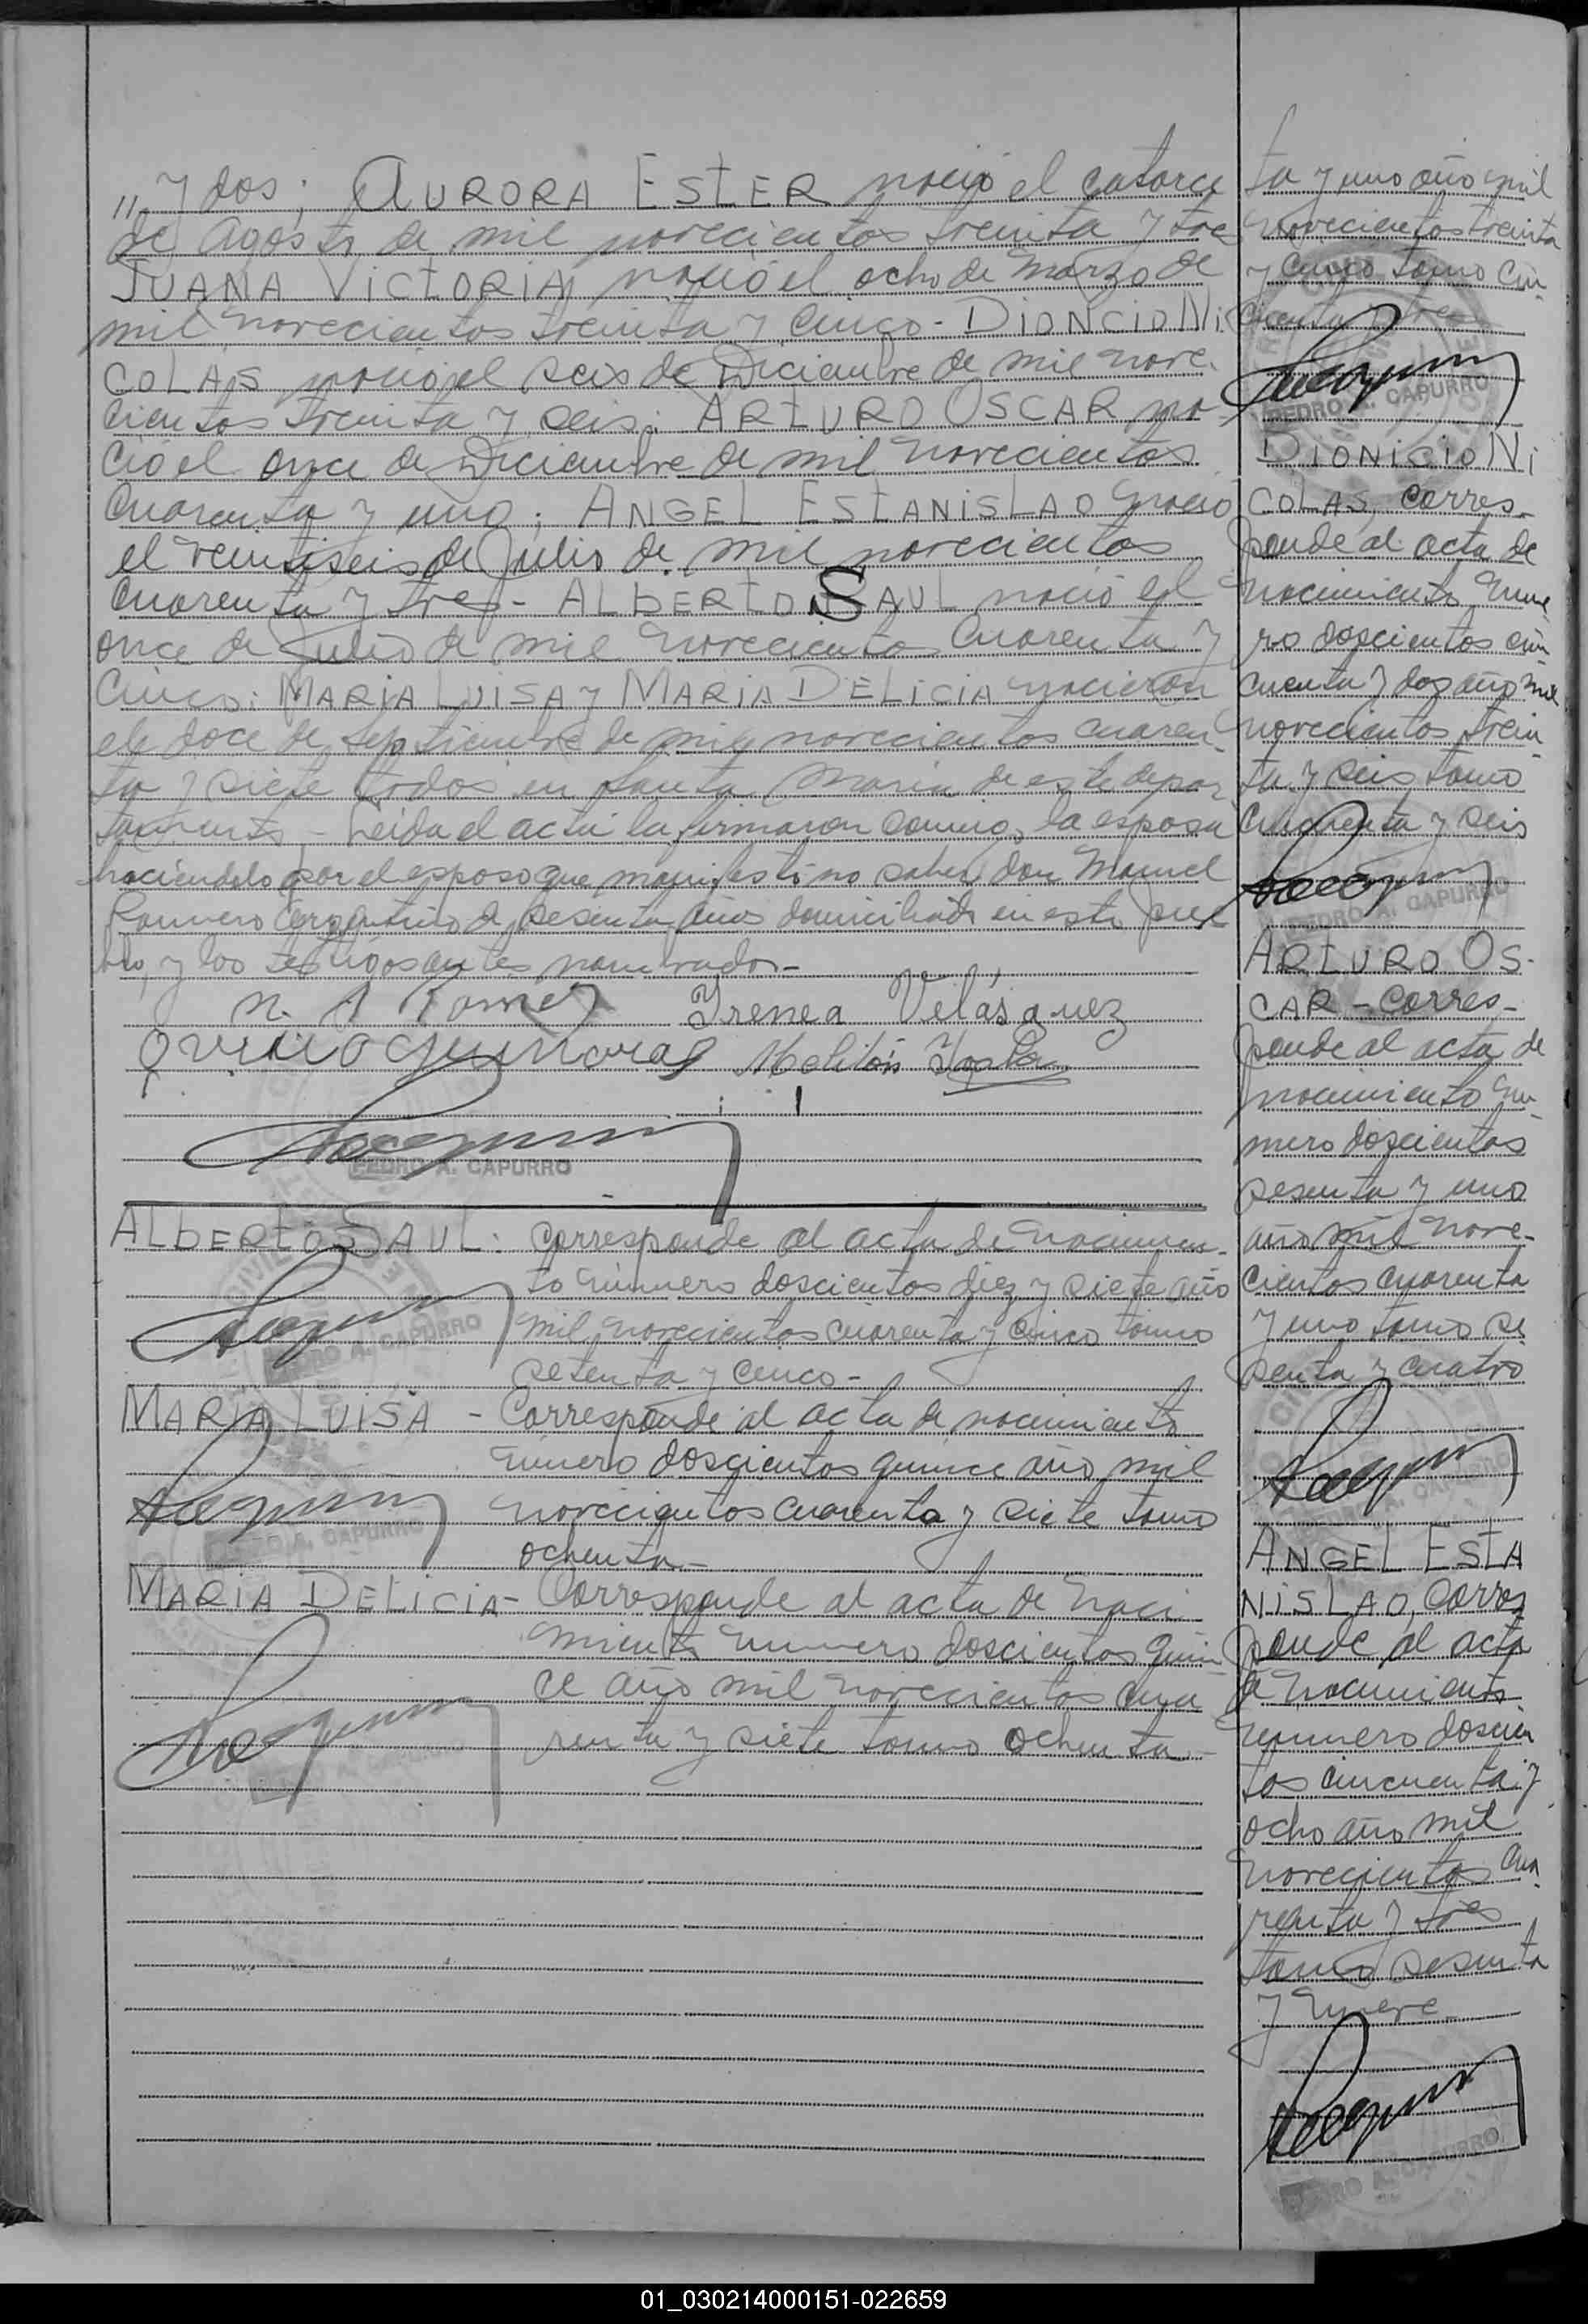 " y dos; AURORA ESTER nació el catorce
de Agosto de mil novecientos treinta y tres
JUANA VICTORIA nació el ocho de Marzo de
mil novecientos treinta y cinco - DIONCIO NI
COLAS nació el seis de Diciembre de mil nove-
cientos treinta y seis; ARTURO OSCAR na-
ció el once de Diciembre de mil novecientos
cuarenta y uno; ANGEL ESTANISLAO nació
el veintiseis de Julio de mil novecientos
cuarenta y tres - ALBERTO SAUL nació el
once de Julio de mil novecientos cuarenta y
cinco: MARIA LUISA y MARIA DELICIA nacieron
el doce de septiembre de mil novecientos cuaren-
ta y siete todos en Santa María de este depar-
tamento - Leida el acta la firmaron conmigo, la esposa
haciendolo por el esposo que manifestó no saber don Manuel
Romero Argentino de sesenta años domiciliado en este pue
blo, y los testigos antes nombrados -
Irenea Velásquez
Melitón
PEDRO A. CAPURRO
ALBERTO SAUL: Corresponde al acta de nacimien-
to número doscientos diez y siete año
mil novecientos cuarenta y cinco tomo
setenta y cinco -
PEDRO A. CAPURRO
MARIA LUISA - Corresponde al acta de nacimiento
número doscientos quince año mil
novecientos cuarenta y siete tomo
ochenta -
PEDRO A. CAPURRO
MARIA DELICIA - Corresponde al acta de naci
miento numero doscientos quin
ce año mil novecientos cua
renta y siete tomo ochenta -
ta y uno año mil
novecientos treinta
y cinco tomo cin
cuenta y tres
PEDRO A. CAPURRO
DIONICIO NI
COLAS, corres-
ponde al acta de
nacimiento núme
ro doscientos cin
cuenta y dos año mil
novecientos trein
ta y seis tomo
cincuenta y seis
PEDRO A. CAPURRO
ARTURO OS-
CAR - corres-
ponde al acta de
nacimiento nú-
mero doscientos
sesenta y uno
año mil nove-
cientos cuarenta
y uno tomo se
senta y cuatro
CAPURRO
ANGEL ESTA
NISLAO, corres
ponde al acta
de nacimiento
numero doscien
tos cincuenta y
ocho año mil
novecientos cua
renta y tres
tomo sesenta
y nueve
PEDRO A. CAPURRO
01_030214000151-022659